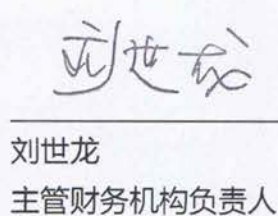 刘世龙
刘世龙
主管财务机构负责人